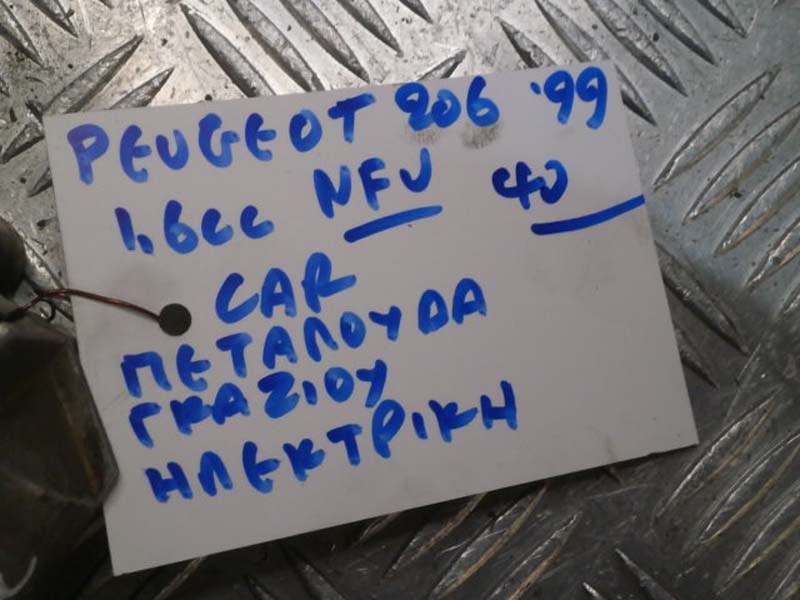 PEUGEOT 206 '99
1.6cc NFU 40
CAR
ΠΕΤΑΛΟΥΔΑ
ΓΚΑΖΙΟΥ
ΗΛΕΚΤΡΙΚΗ